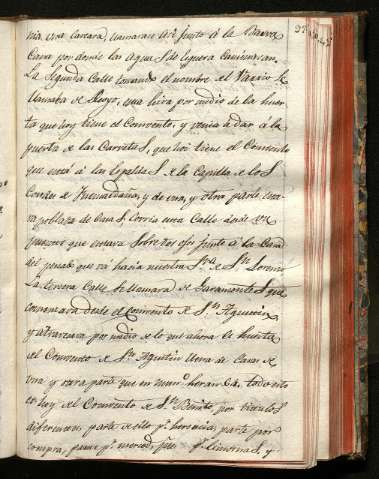 una cercada, llamarase así junto á la Barra
Cava por donde las Aguas de Esgueva Caminavan.
La Segunda Calle tomando el nombre del Varrio se
llamaba de Reoyo, esta hiva por medio de la huer
ta que hoy tiene el Convento, y venia á dar á la
puerta de las Carretas, que hoi tiene el Convento
que está á las espaldas de la Capilla de los
Condes de Fuensaldaña, y de una, y otra parte, esta
va poblada de Casas, Corria esta Calle desde un
que estava Sobre dos ojos junto á la Casa
del que va hacia nuestra Sra. de Sn. Lorenzo
La tercera Calle se llamava de Saramontes que
comenzava desde el Convento de Sn. Agustin,
y atravesava por medio de lo que ahora es huerta
del Convento de Sn. Agustin llena de Casas de
una y otra parte que en num.º heran 64, todo esto
es hoy del Convento de Sn. Benito, por titulos
diferentes, parte de ello pr. herencia, parte por
compra, parte pr. merced, pr. limosnas, y